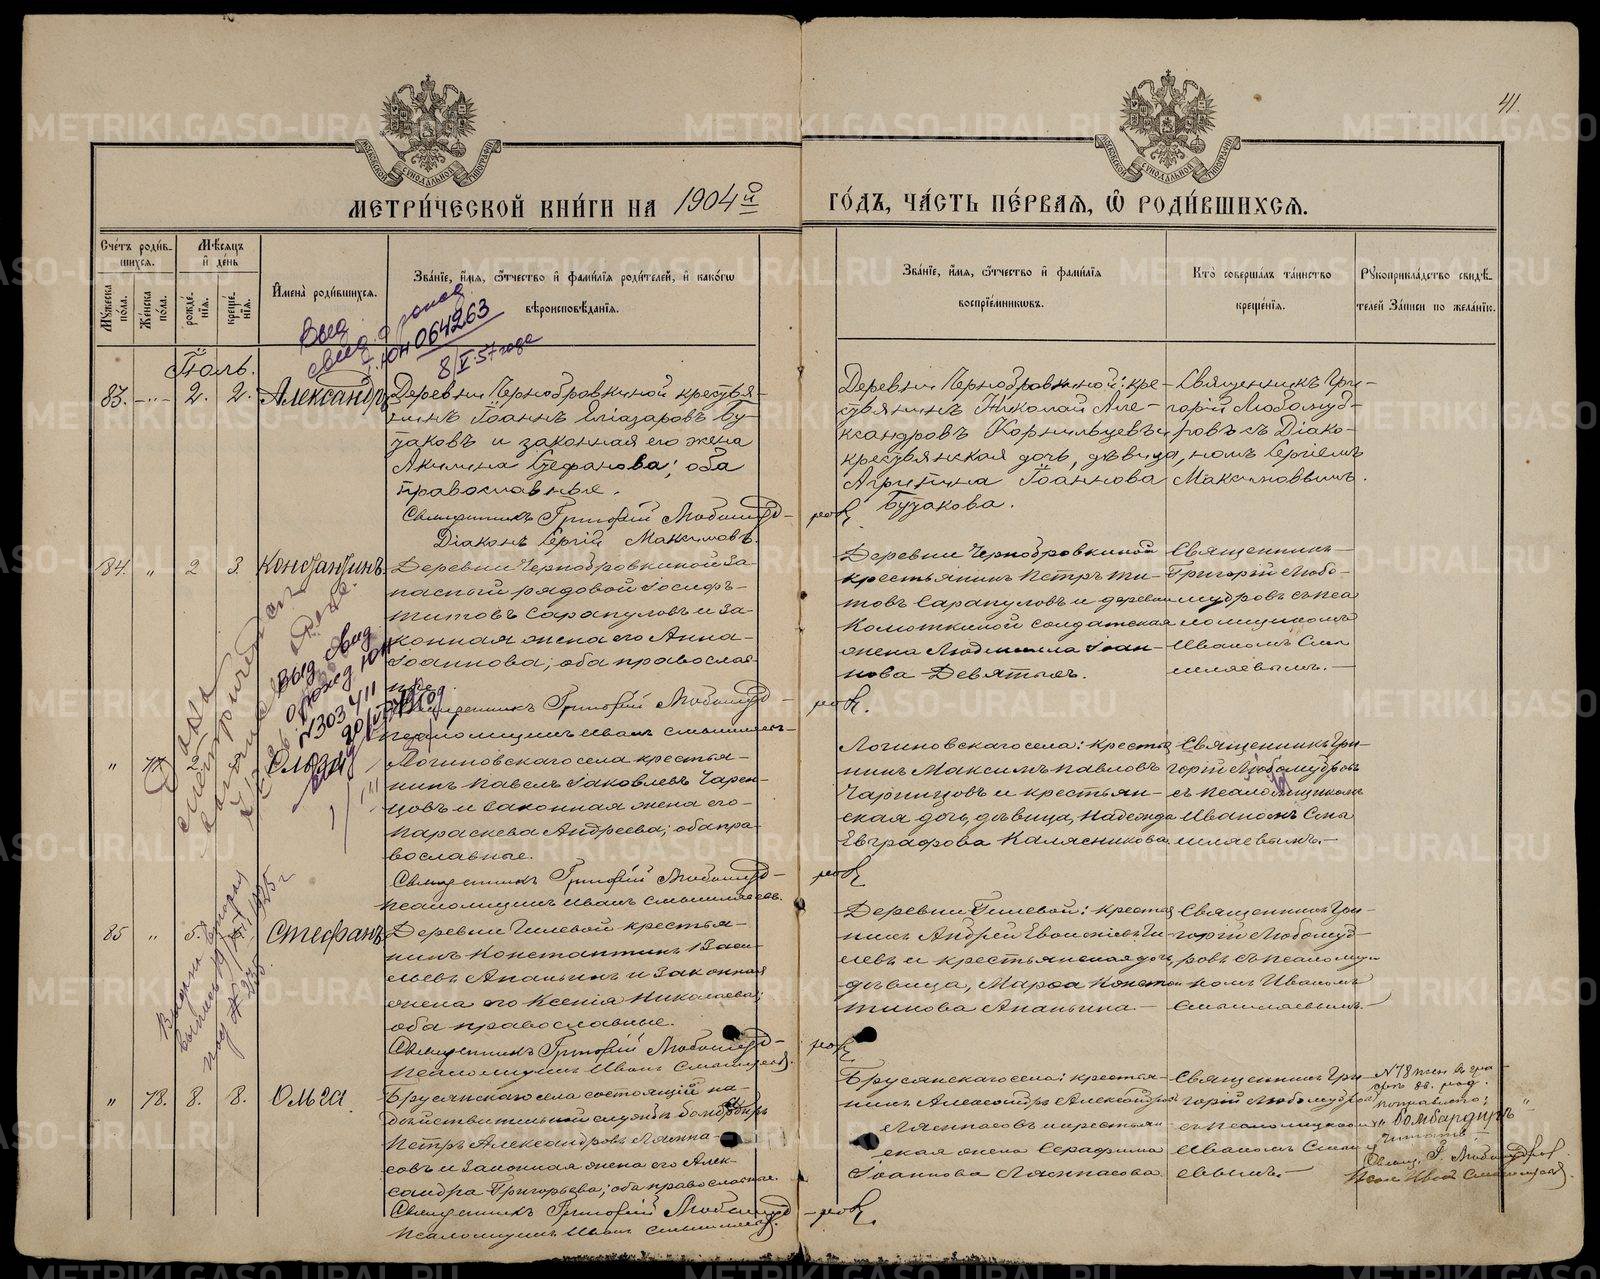 41.
МЕТРИ́ЧЕСКОЙ КНИ́ГИ НА 1904й
ГО́ДЪ, ЧА́СТЬ ПЕ́РВАЯ, Ѡ҆ РОДИ́ВШИХСЯ.
Сче́тъ роди́в-
шихся.
Му́жеска по́ла.
Же́нска по́ла.
Мѣ́сяцъ и҆ де́нь
рожде́нїя.
креще́нїя.
И҆мена̀ роди́вшихся.
Зва́нїе, и҆́мя, ѻ҆́тчество и҆ фами́лїя роди́телей, и҆ како́гѡ
вѣроисповѣ́данїя.
Зва́нїе, и҆́мя, ѻ҆́тчество и҆ фами́лїя
воспрїе́мниковъ.
Кто̀ соверша́лъ та́инство
креще́нїя.
Рꙋкоприкла́дство свидѣ́-
телей за́писи по жела́нїю.
Выд.
064263
8/V-57 года
Іюль.
83. -"- 2. 2. Александръ
Деревни Чернобровкиной крестья-
нинъ Іоаннъ Еліазаровъ Бу-
заковъ и законная его жена
Акилина Стефанова; оба
православные.
Священникъ Григорій Любомуд-
ровъ.
Діаконъ Сергій Максимовъ.
Деревни Чернобровкиной: кре-
стьянинъ Николай Але-
ксандровъ Корнильцевъ и
крестьянская дочь, дѣвица,
Агрипина Іоаннова
Бузакова.
Священникъ Гри-
горій Любомуд-
ровъ съ Діако-
номъ Сергіемъ
Максимовымъ.
84. " 2 3. Константинъ
Деревни Чернобровкиной за-
пасный рядовой Іосифъ
Титовъ Сарапуловъ и за-
конная жена его Анна
Іоаннова; оба православ-
ные.
Священникъ Григорій Любомуд-
ровъ.
Псаломщикъ Иванъ Смышляевъ.
Деревни Чернобровкиной
крестьянинъ Петръ Ти-
товъ Сарапуловъ и деревни
Колоткиной солдатская
жена Людмилла Іоан-
нова Девятыхъ.
Священникъ
Григорій Любо-
мудровъ съ пса-
ломщикомъ
Иваномъ Смы-
шляевымъ.
Выд свид
о рожд ЮН
№303411
" 77
Логиновскаго села крестья-
нинъ Павелъ Іаковлевъ Чарен-
цовъ и законная жена его
Параскева Андреева; оба пра-
вославные.
Священникъ Григорій Любомуд-
ровъ.
Псаломщикъ Иванъ Смышляевъ.
Логиновскаго села: крестья-
нинъ Максимъ Павловъ
Чаринцовъ и крестьян-
ская дочь, дѣвица, Надежда
Евграфова Калясникова
Священникъ Гри-
горій Любомудровъ
съ псаломщикомъ
Иваномъ Смы-
шляевымъ.
Выдана
выпись
под № 235
1925 г
85 " 5. Стефанъ
Деревни Гилевой крестья-
нинъ Константинъ Васи-
льевъ Ананьинъ и законная
жена его Ксенія Николаева;
оба православные.
Священникъ Григорій Любомуд-
ровъ.
Псаломщикъ Иванъ Смышляевъ.
Деревни Гилевой: крестья-
нинъ Андрей Ги-
левъ и крестьянская дочь,
дѣвица, Марѳа Констан-
тинова Ананьина
Священникъ Гри-
горій Любомуд-
ровъ съ псаломщи-
комъ Иваномъ
Смышляевымъ.
" 78. 8. 8. Ольга.
Брусянскаго села состоящій на
дѣйствительной службѣ бомбардиръ
Петръ Александровъ Ляппа-
совъ и законная жена его Алек-
сандра Григорьева; оба православные.
Священникъ Григорій Любомуд-
ровъ.
Псаломщикъ Иванъ Смышляевъ.
Брусянскаго села: крестья-
нинъ Александръ Александровъ
Ляппасовъ и крестьян-
ская жена Серафима
Іоаннова Ляппасова
Священникъ Гри-
горій Любомудровъ
съ псаломщикомъ
Иваномъ Смышля-
евымъ.
№78 жен. въ гра-
фѣ зв. род.
поправлено:
"бомбардиръ"
читать.
Свящ. Г. Любомудровъ.
Псал. Иванъ Смышляевъ.